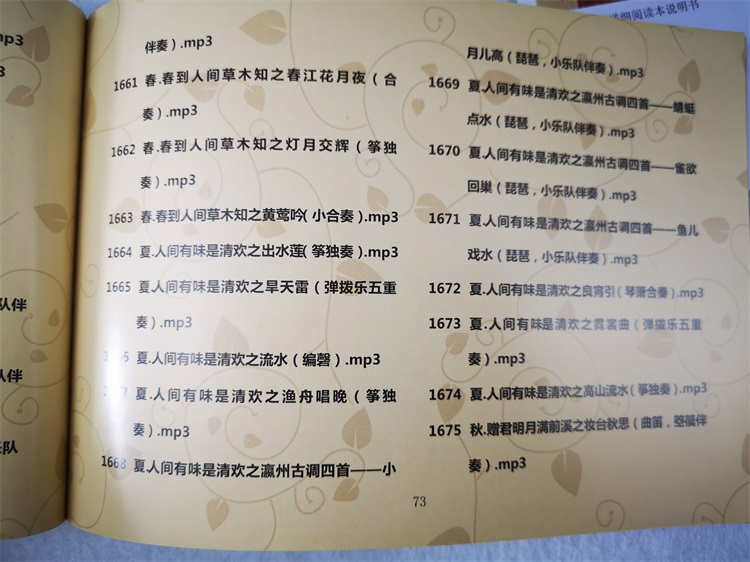 伴奏).mp3
1661 春.春到人间草木知之春江花月夜(合
奏).mp3
1662 春.春到人间草木知之灯月交辉(筝独
奏).mp3
1663 春.春到人间草木知之黄莺吟(小合奏).mp3
1664 夏.人间有味是清欢之出水莲(筝独奏).mp3
1665 夏.人间有味是清欢之旱天雷(弹拨乐五重
奏).mp3
夏.人间有味是清欢之流水(编磬).mp3
夏.人间有味是清欢之渔舟唱晚(筝独
奏).mp3
1668 夏.人间有味是清欢之瀛州古调四首——小
月儿高(琵琶,小乐队伴奏).mp3
1669 夏.人间有味是清欢之瀛州古调四首——蜻蜓
点水(琵琶,小乐队伴奏).mp3
1670 夏.人间有味是清欢之瀛州古调四首——雀欲
回巢(琵琶,小乐队伴奏).mp3
1671 夏.人间有味是清欢之瀛州古调四首——鱼儿
戏水(琵琶,小乐队伴奏).mp3
1672 夏.人间有味是清欢之良宵引(琴箫合奏).mp3
1673 夏.人间有味是清欢之霓裳曲(弹拨乐五重
奏).mp3
1674 夏.人间有味是清欢之高山流水(筝独奏).mp3
1675 秋.赠君明月满前溪之妆台秋思(曲笛,箜篌伴
奏).mp3
73
mp3
队伴
队伴
乐队
细阅读本说明书